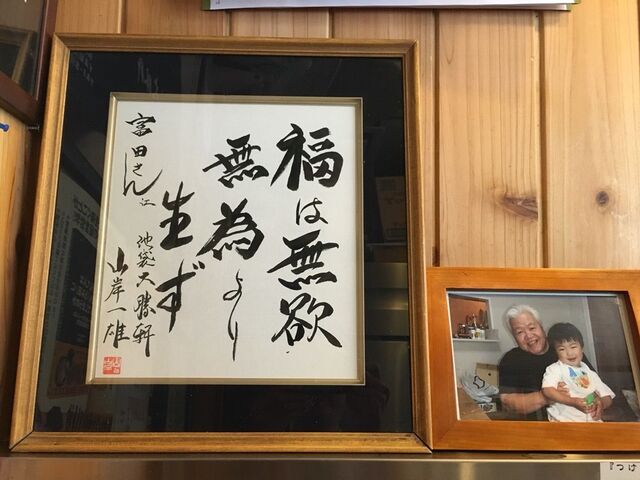 福は無欲
無為より
生ず
富田さん江
池袋大勝軒
山岸一雄
『つけ